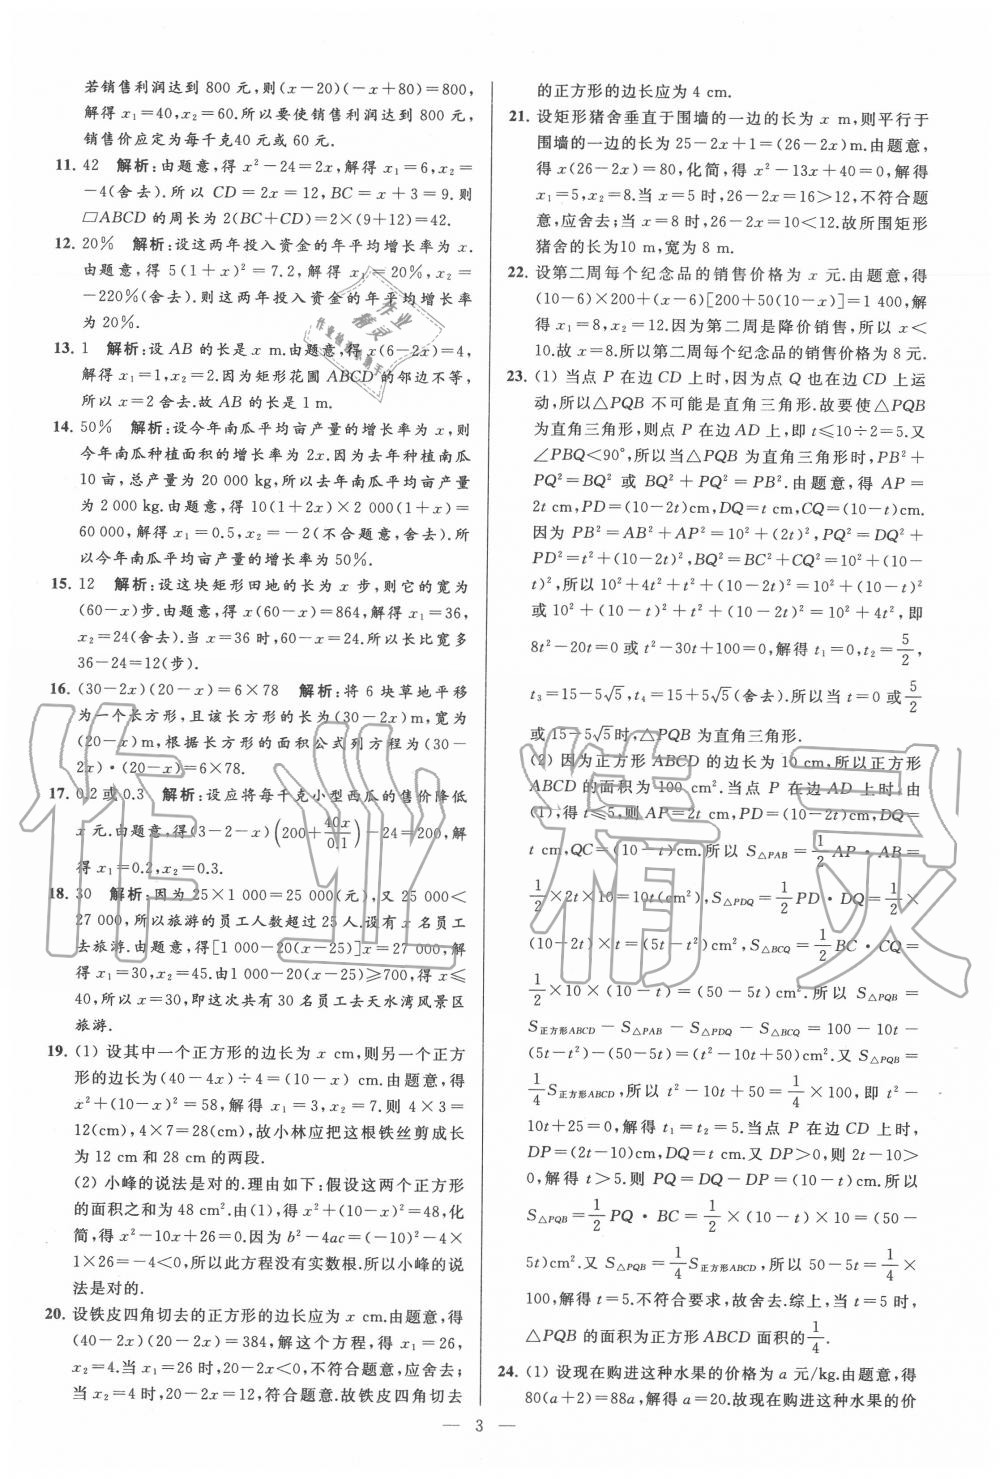 若销售利润达到 800 元,则(x－20)(－x＋80)=800,
解得 x₁=40,x₂=60.所以要使销售利润达到 800 元,
销售价应定为每千克40元或 60 元.
11. 42 解析:由题意,得 x²－24=2x,解得 x₁=6,x₂=
－4(舍去).所以 CD=2x=12,BC=x＋3=9.则
□ABCD 的周长为 2(BC+CD)=2×(9+12)=42.
12. 20% 解析:设这两年投入资金的年平均增长率为 x.
由题意,得 5(1+x)²=7.2,解得 x₁=20%,x₂=
－220%(舍去).则这两年投入资金的年平均增长率
为 20%.
13. 1 解析:设 AB 的长是 x m.由题意,得 x(6－2x)=4,
解得 x₁=1,x₂=2.因为矩形花圃 ABCD 的邻边不等,
所以 x=2 舍去.故 AB 的长是 1 m.
14. 50% 解析:设今年南瓜平均亩产量的增长率为 x,则
今年南瓜种植面积的增长率为 2x.因为去年种植南瓜
10 亩,总产量为 20 000 kg,所以去年南瓜平均亩产量
为 2 000 kg.由题意,得 10(1+2x)×2 000(1+x)=
60 000,解得 x₁=0.5,x₂=－2(不合题意,舍去).所
以今年南瓜平均亩产量的增长率为 50%.
15. 12 解析:设这块矩形田地的长为 x 步,则它的宽为
(60－x)步.由题意,得 x(60－x)=864,解得 x₁=36,
x₂=24(舍去).当 x=36 时,60－x=24.所以长比宽多
36－24=12(步).
16. (30－2x)(20－x)=6×78 解析:将 6 块草地平移
为一个长方形,且该长方形的长为(30－2x)m,宽为
(20－x)m,根据长方形的面积公式列方程为(30－
2x)·(20－x)=6×78.
17. 0.2 或 0.3 解析:设应将每千克小型西瓜的售价降低
x 元.由题意,得(3－2－x)(200+40x/0.1)－24=200,解
得 x₁=0.2,x₂=0.3.
18. 30 解析:因为 25×1 000=25 000(元),又 25 000<
27 000,所以旅游的员工人数超过 25 人.设有 x 名员工
去旅游.由题意,得[1 000－20(x－25)]x=27 000,解得
x₁=30,x₂=45.由1 000－20(x－25)≥700,得 x≤
40,所以 x=30,即这次共有 30 名员工去天水湾风景区
旅游.
19. (1) 设其中一个正方形的边长为 x cm,则另一个正方
形的边长为(40－4x)÷4=(10－x)cm.由题意,得
x²+(10－x)²=58,解得 x₁=3,x₂=7.则 4×3=
12(cm),4×7=28(cm),故小林应把这根铁丝剪成长
为 12 cm 和 28 cm 的两段.
(2) 小峰的说法是对的.理由如下:假设这两个正方形
的面积之和为 48 cm².由(1),得 x²+(10－x)²=48,化
简,得 x²－10x+26=0.因为 b²－4ac=(－10)²－4×
1×26=－4<0,所以此方程没有实数根.所以小峰的说
法是对的.
20. 设铁皮四角切去的正方形的边长应为 x cm.由题意,得
(40－2x)(20－2x)=384,解这个方程,得 x₁=26,
x₂=4.当 x₁=26 时,20－2x<0,不符合题意,应舍去;
当 x₂=4 时,20－2x=12,符合题意.故铁皮四角切去
的正方形的边长应为 4 cm.
21. 设矩形猪舍垂直于围墙的一边的长为 x m,则平行于
围墙的一边的长为 25－2x+1=(26－2x)m.由题意,
得 x(26－2x)=80,化简,得 x²－13x+40=0,解得
x₁=5,x₂=8.当 x=5 时,26－2x=16>12,不符合题
意,应舍去;当 x=8 时,26－2x=10<12.故所围矩形
猪舍的长为10 m,宽为 8 m.
22. 设第二周每个纪念品的销售价格为 x 元.由题意,得
(10－6)×200+(x－6)[200+50(10－x)]=1 400,解
得 x₁=8,x₂=12.因为第二周是降价销售,所以 x<
10.故 x=8.所以第二周每个纪念品的销售价格为 8 元.
23. (1) 当点 P 在边 CD 上时,因为点 Q 也在边 CD 上运
动,所以△PQB 不可能是直角三角形.故要使△PQB
为直角三角形,则点 P 在边 AD 上,即 t≤10÷2=5.又
∠PBQ<90°,所以当△PQB 为直角三角形时,PB²+
PQ²=BQ² 或 BQ²+PQ²=PB².由题意,得 AP=
2t cm,PD=(10－2t)cm,DQ=t cm,CQ=(10－t)cm.
因为 PB²=AB²+AP²=10²+(2t)²,PQ²=DQ²+
PD²=t²+(10－2t)²,BQ²=BC²+CQ²=10²+(10－
t)²,所以 10²+4t²+t²+(10－2t)²=10²+(10－t)²
或 10²+(10－t)²+t²+(10－2t)²=10²+4t²,即
8t²－20t=0或 t²－30t+100=0,解得 t₁=0,t₂=5/2,
t₃=15－5√5,t₄=15+5√5(舍去).所以当 t=0 或 5/2
或 15－5√5时,△PQB 为直角三角形.
(2) 因为正方形 ABCD 的边长为 10 cm,所以正方形
ABCD 的面积为 100 cm².当点 P 在边 AD 上时,由
(1),得 t≤5,AP=2t cm,PD=(10－2t)cm,DQ=
t cm,QC=(10－t)cm.所以 S△PAB=1/2 AP·AB=
1/2×2t×10=10t(cm²),S△PDQ=1/2 PD·DQ=1/2×
(10－2t)×t=(5t－t²)cm²,S△BCQ=1/2 BC·CQ=
1/2×10×(10－t)=(50－5t)cm².所以 S△PQB=
S正方形ABCD－S△PAB－S△PDQ－S△BCQ=100－10t－
(5t－t²)－(50－5t)=(t²－10t+50)cm².又 S△PQB=
1/4 S正方形ABCD,所以 t²－10t+50=1/4×100,即 t²－
10t+25=0,解得 t₁=t₂=5.当点 P 在边 CD 上时,
DP=(2t－10)cm,DQ=t cm.又 DP>0,则 2t－10>
0,解得 t>5.则 PQ=DQ－DP=(10－t)cm.所以
S△PQB=1/2 PQ·BC=1/2×(10－t)×10=(50－
5t)cm².又 S△PQB=1/4 S正方形ABCD,所以50－5t=1/4×
100,解得 t=5.不符合要求,故舍去.综上,当 t=5 时,
△PQB 的面积为正方形 ABCD 面积的1/4.
24. (1) 设现在购进这种水果的价格为 a 元/kg.由题意,得
80(a+2)=88a,解得 a=20.故现在购进这种水果的价
— 3 —
作业精灵